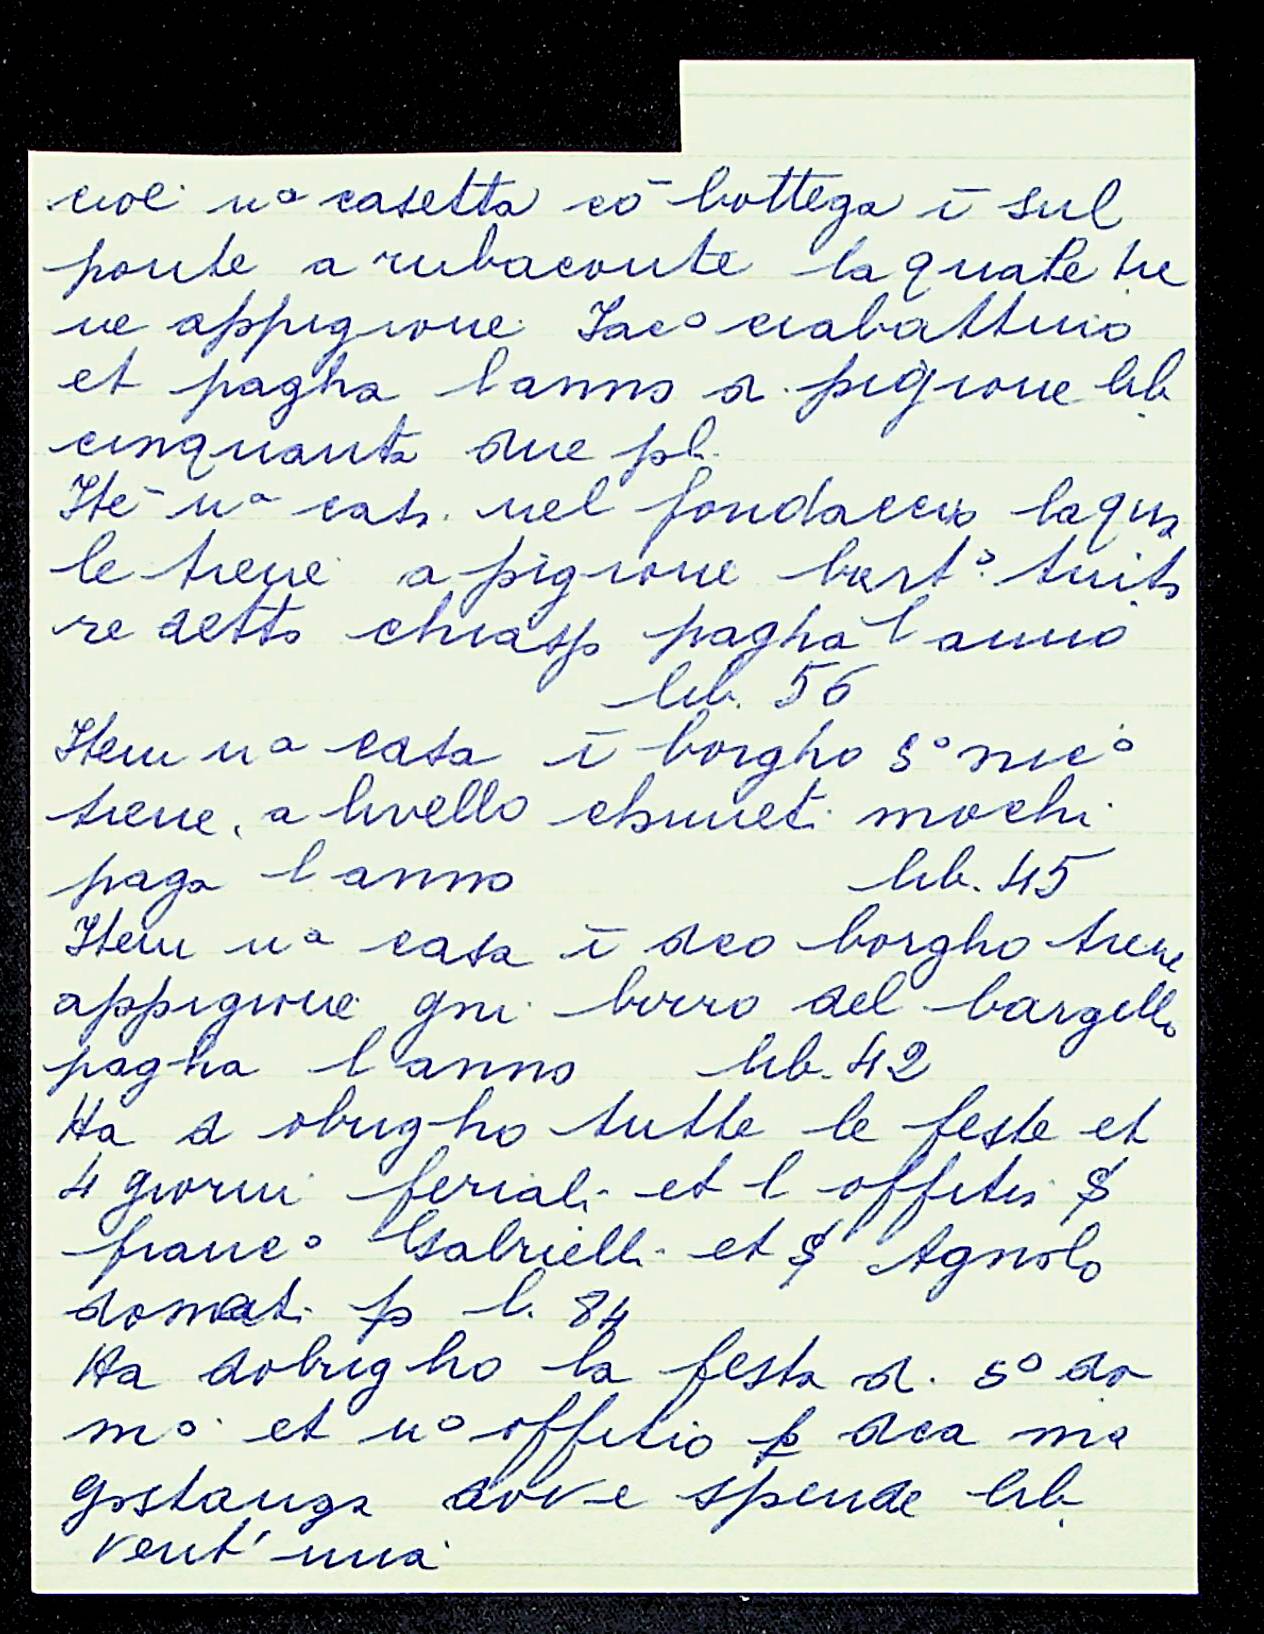 cioè uª casetta cō bottega ī sul
ponte a rubaconte la quale tie
ne appigione Iacº ciabattino
et pagha l anno di pigione lib.
cinquanta due pli.
Itē uª casa nel fondaccio laqua
le tiene a pigione bartº. tinto
re detto chiasso pagha l anno
lib. 56
Item uª casa ī borgho sº nicº
tiene a livello mochi
paga l anno lib. 45
Item uª casa ī dco borgho tiene
appigione gni birro del bargello
pagha l anno lib. 42
Ha d obrigho tutte le feste et
4 giorni feriali et l offitio
francº Gabrielli et Agnolo
donati p l. 84
Ha dobrigho la festa di sº do
mº et uº offitio p dca mª
gostanza dove spende lib.
vent' una